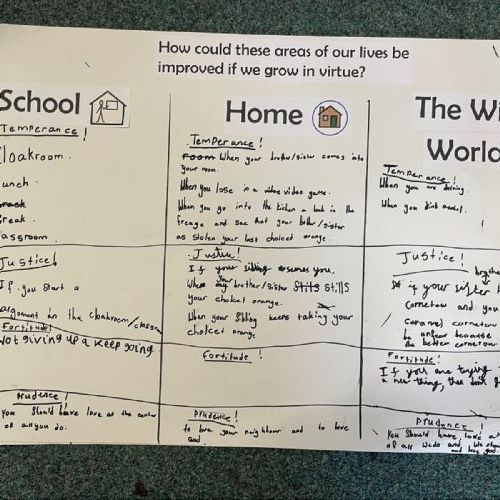 How could these areas of our lives be
improved if we grow in virtue?
School
Temperance!
Cloakroom.
Lunch.
Break.
Classroom.
Justice!
If you start a
argument in the cloakroom/classroom
Fortitude!
Not giving up & keep going
Prudence!
You should have love at the center
of all you do.
Home
Temperance!
room When your brother/sister comes into
your room.
When you lose in a video video game.
When you go into the kitchen & look in the
freage and see that your brother/sister
as stolen your last choclet orange.
Justice!
If your sibling you.
When your brother/sister stills
your choklat orange.
When your Sibling keeps taking your
cholcet orange
Fortitude!
Prudence!
to love your neighbour and to love
God
The Wi
World
Temperance!
When you are driving.
When you drink
Justice!
if your sister
cornetow and you
caramel cornetow
be unfear because
better cornetow
Fortitude!
If you are trying
a new thing, then
Prudence!
You Should have love
of all We do and